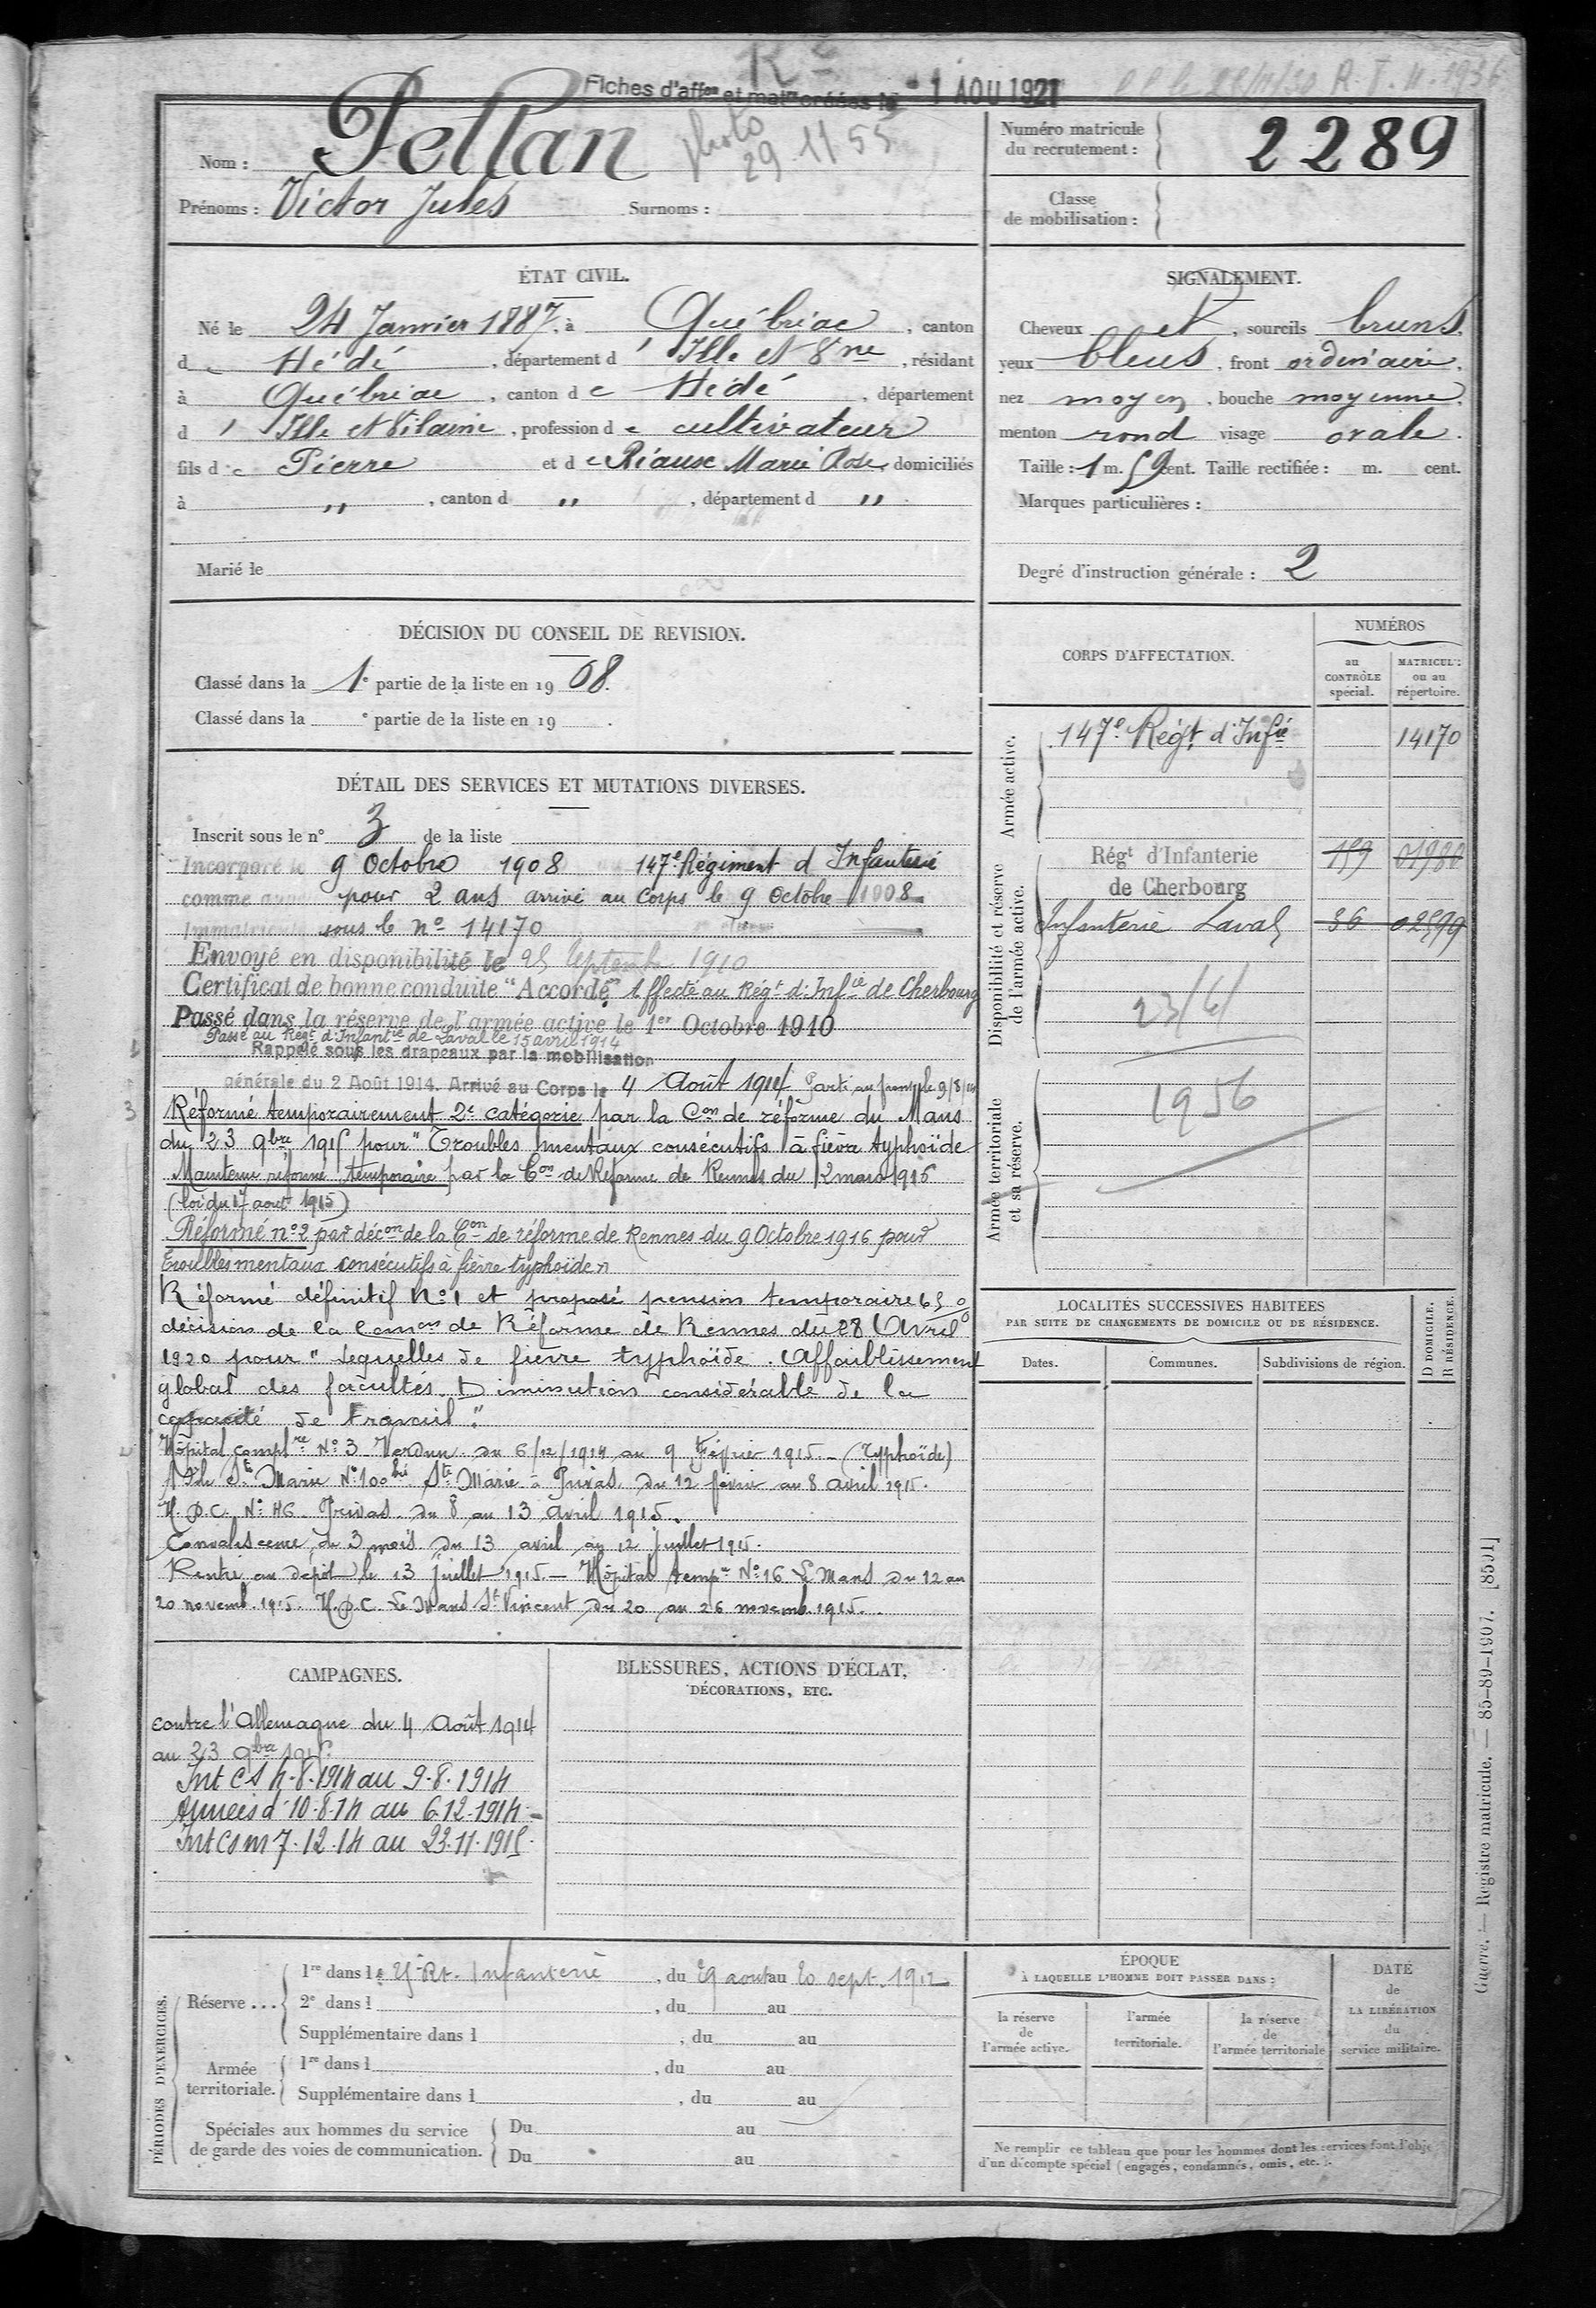 Fiches d'affon et matre créées le 1 AOU 1921
R. T. 4. 1936
Nom : Pellan
photo 29 11 55
Prénoms : Victor Jules Surnoms :
Numéro matricule du recrutement : 2289
Classe de mobilisation :
ÉTAT CIVIL.
Né le 24 Janvier 1887, à Québriac, canton
de Hédé, département d'Ille et Vne, résidant
à Québriac, canton de Hédé, département
d'Ille et Vilaine, profession de cultivateur
fils de Pierre et de Riause Marie Rose, domiciliés
à ,, , canton d ,, , département d ,, .
Marié le
SIGNALEMENT.
Cheveux et, sourcils bruns,
yeux bleus, front ordinaire,
nez moyen, bouche moyenne,
menton rond visage ovale.
Taille : 1 m. 59 cent. Taille rectifiée : m. cent.
Marques particulières :
Degré d'instruction générale : 2
DÉCISION DU CONSEIL DE REVISION.
Classé dans la 1e partie de la liste en 1908.
Classé dans la e partie de la liste en 19 .
DÉTAIL DES SERVICES ET MUTATIONS DIVERSES.
Inscrit sous le n° 3 de la liste
Incorporé le 9 Octobre 1908 au 147e Régiment d'Infanterie
comme pour 2 ans arrivé au corps le 9 Octobre 1908
Immatriculé sous le No 14170
Envoyé en disponibilité le 25 Septemb 1910
Certificat de bonne conduite "Accordé" Affecté au Régt d'Infie de Cherbourg
Passé dans la réserve de l'armée active le 1er Octobre 1910
Passé au Régt d'Infantie de Laval le 15 avril 1914
Rappelé sous les drapeaux par la mobilisation
générale du 2 Août 1914. Arrivé au Corps le 4 Août 1914 Parti au front le 9/8/14
Réformé temporairement 2e catégorie par la Con de réforme du Mans
du 23 9bre 1915 pour "Troubles mentaux consécutifs à fièvre typhoïde
Maintenu réformé temporaire par la Con de Réforme de Rennes du 2 mars 1916
(loi du 17 aout 1915)
Réformé n°2 par décon de la Con de réforme de Rennes du 9 Octobre 1916 pour
Troubles mentaux consécutifs à fièvre typhoïde"
Réformé définitif No 1 et proposé pension temporaire 65 %
décision de la Comon de Réforme de Rennes du 28 Avril
1920 pour "Sequelles de fièvre typhoïde. Affaiblissement
global des facultés. Diminution considérable de la
capacité de travail."
Hôpital complre No 3 Verdun du 6/12/1914 au 9 Février 1915 – (Typhoïde)
Ste Marie No 100 bis Ste Marie à Privas du 12 février au 8 avril 1915.
H.D.C. No 46 Privas du 8 au 13 avril 1915.
Convalescence de 3 mois du 13 avril au 12 juillet 1915.
Rentré au dépôt le 13 juillet 1915 – Hôpital tempre No 16 Le Mans du 12 au
20 novemb. 1915. H.D.C. Le Mans St Vincent du 20 au 26 novemb. 1915.
CORPS D'AFFECTATION.
NUMÉROS
au CONTRÔLE spécial.
MATRICULE ou au répertoire.
Armée active.
147e Régt d'Infie 14170
Disponibilité et réserve de l'armée active.
Régt d'Infanterie de Cherbourg 159 01980
Infanterie Laval 36 02599
23/4/
1956
Armée territoriale et sa réserve.
LOCALITÉS SUCCESSIVES HABITÉES
PAR SUITE DE CHANGEMENTS DE DOMICILE OU DE RÉSIDENCE.
Dates. Communes. Subdivisions de région. D DOMICILE. R RÉSIDENCE.
CAMPAGNES.
contre l'Allemagne du 4 Août 1914
au 23 9bre 1915.
Int CS 4.8.1914 au 9.8.1914
Armées d 10.8.14 au 6.12.1914 –
Int CSM 7.12.14 au 23.11.1915.
BLESSURES, ACTIONS D'ÉCLAT,
DÉCORATIONS, ETC.
PÉRIODES D'EXERCICES.
Réserve ...
1re dans le 25e Rt. Infanterie, du 29 aout au 20 sept. 1912
2e dans l , du au
Supplémentaire dans l , du au
Armée territoriale.
1re dans l , du au
Supplémentaire dans l , du au
Spéciales aux hommes du service de garde des voies de communication.
Du au
Du au
ÉPOQUE
À LAQUELLE L'HOMME DOIT PASSER DANS :
la réserve de l'armée active.
l'armée territoriale.
la réserve de l'armée territoriale
DATE de LA LIBÉRATION du service militaire.
Ne remplir ce tableau que pour les hommes dont les services font l'objet
d'un décompte spécial (engagés, condamnés, omis, etc.).
Guerre. — Registre matricule. — 85-89-1907. [8591]